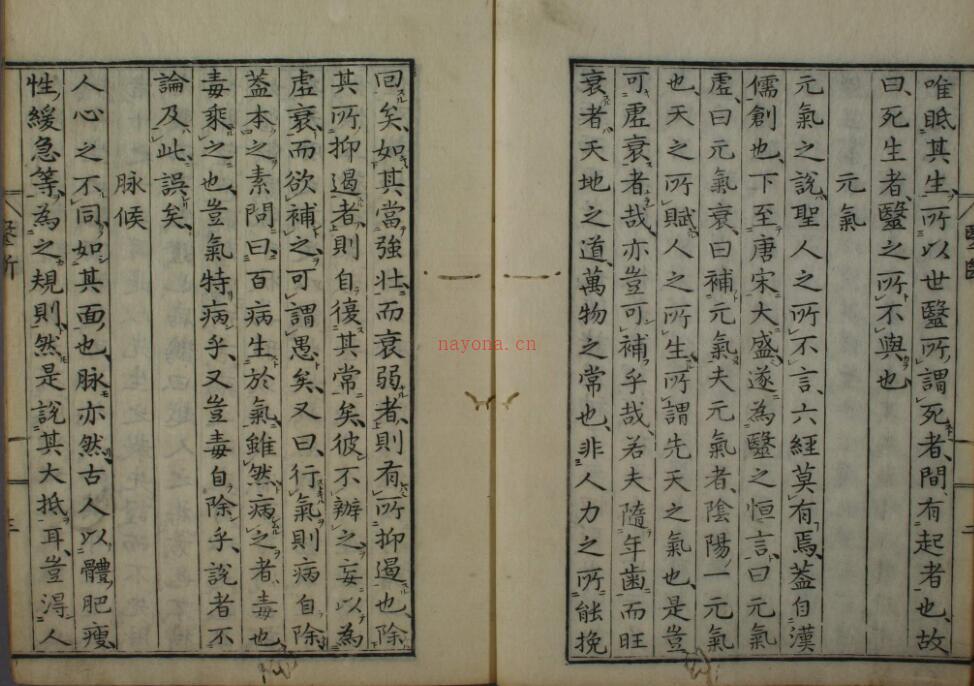 唯眡其生、所以世毉所謂死者、間有起者也、故
曰、死生者、毉之所不與也
元氣
元氣之說、聖人之所不言、六經莫有焉、葢自漢
儒創也、下至唐宋大盛、遂為毉之恒言、曰元氣
虛、曰元氣衰、曰補元氣、夫元氣者、陰陽一元氣
也、天之所賦、人之所生、所謂先天之氣也、是豈
可虛衰者哉、亦豈可補乎哉、若夫隨年齒而旺
衰者、天地之道、萬物之常也、非人力之所能挽
回矣、如其當強壯而衰弱者、則有所抑遏也、除
其所抑遏者、則自復其常矣、彼不辨之、妄以為
虛衰、而欲補之、可謂愚矣、又曰、行氣則病自除
葢本之素問曰、百病生於氣、雖然病之者、毒也
毒乘之也、豈氣特病乎、又豈毒自除乎、說者不
論及此、誤矣、
脉候
人心之不同、如其面也、脉亦然、古人以體肥瘦
性緩急等、為之規則、然是說其大抵耳、豈得人
毉斷
二
三
nayona.cn